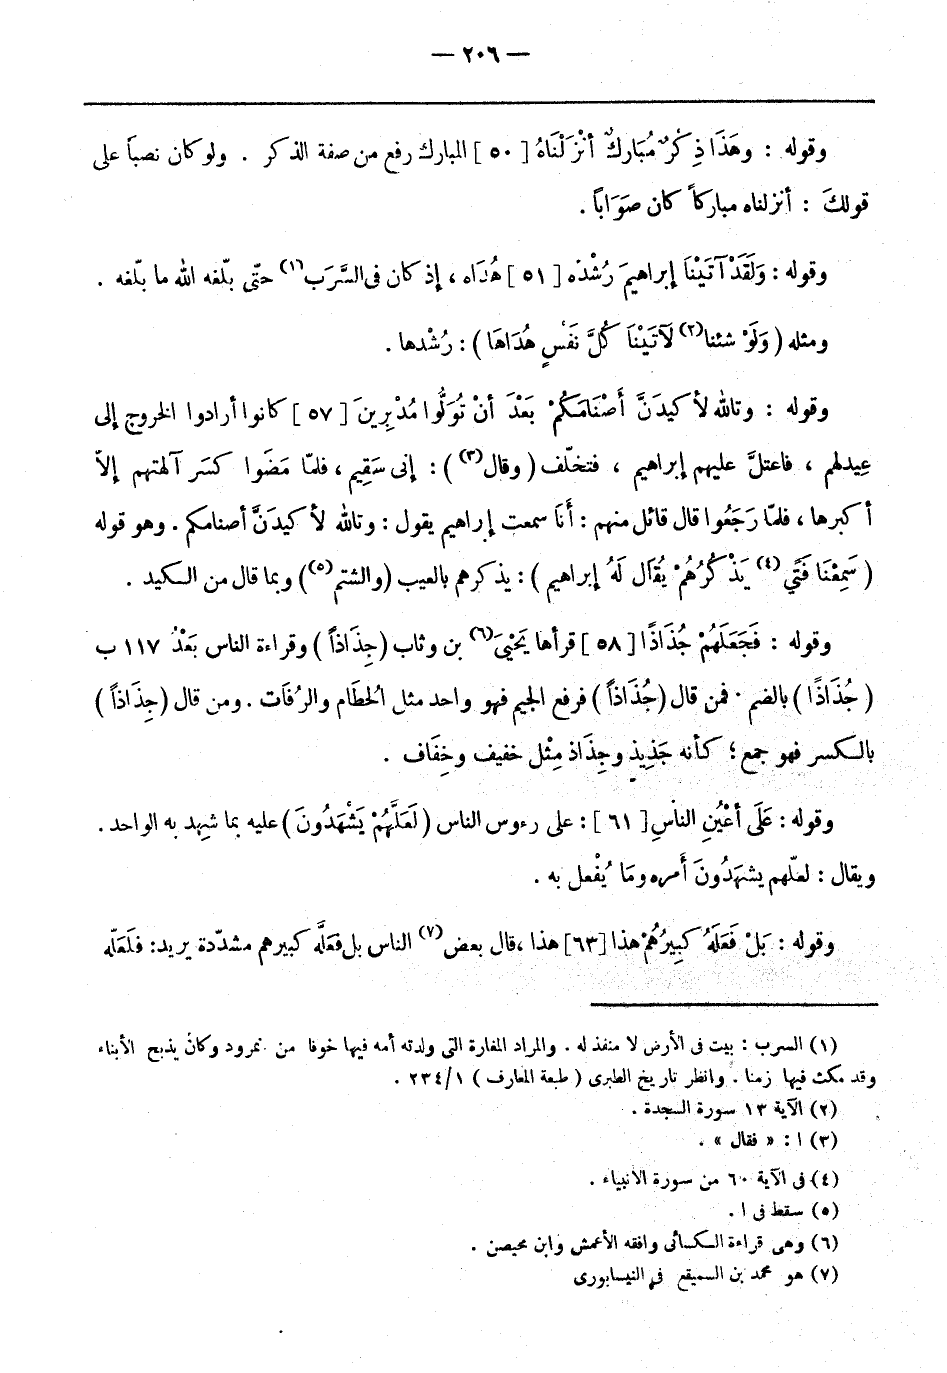 — ٢٠٦ —
وقوله : وهَذَا ذِكْرٌ مُبَارَكٌ أنْزَلْنَاهُ [ ٥٠ ] المبارك رفع من صفة الذكر . ولو كان نصباً على
قولكَ : أنزلناه مباركاً كان صَوَاباً .
وقوله : وَلَقَدْ آتَيْنَا إبراهيمَ رُشْدَه [ ٥١ ] هُدَاه ، إذ كان فى السَّرَب(١) حتّى بلّغه الله ما بلّغه .
ومثله ( وَلَوْ شئنا(٢) لَآتَيْنَا كُلَّ نَفْسٍ هُدَاهَا ) : رُشْدها .
وقوله : وتالله لأكيدَنَّ أَصْنَامَكُمْ بَعْدَ أنْ تُوَلُّوا مُدْبِرِينَ [ ٥٧ ] كانوا أرادوا الخروج إلى
عِيدلهم ، فاعتلَّ عليهم إبراهيم ، فتخلّف ( وقال(٣) ) : إنى سَقِيم ، فلمّا مَضَوا كسَر آلهتهم إلاّ
أكبرها ، فلمّا رَجَعُوا قال قائل منهم : أَنَا سمعت إبراهيم يقول : وتالله لأكيدَنَّ أصنامكم . وهو قوله
( سَمِعْنَا فَتًى(٤) يَذْكُرُهُمْ يُقَال لَهُ إبراهيم ) : يذكرهم بالعيب (والشتم(٥)) وبما قال من الكيد .
وقوله : فَجَعَلَهُمْ جُذَاذًا [ ٥٨ ] قرأها يَحْيَىٰ(٦) بن وثاب (جِذَاذاً ) وقراءة الناس بَعْدُ ١١٧ ب
( جُذَاذًا ) بالضم . فمن قال (جُذَاذاً ) فرفع الجيم فهو واحد مثل الحُطَام والرُفَات . ومن قال (جِذَاذاً )
بالكسر فهو جمع ؛ كأنه جَذِيذ وجِذَاذ مِثْل خفيف وخِفَاف .
وقوله : عَلَى أَعْيُنِ الناسِ [ ٦١ ] : على رءوس الناس (لَعَلَّهُمْ يَشْهَدُونَ ) عليه بما شهِد به الواحد .
ويقال : لعلّهم يشهَدُونَ أَمره ومَا يُفْعل به .
وقوله : بَلْ فَعَلَهُ كَبِيرُهُمْ هذا [٦٣] هذا ، قال بعض(٧) الناس بل فعَلَّه كبيرهم مشدّدة يريد : فلَعَلّه
(١) السرب : بيت فى الأرض لا منفذ له . والمراد المغارة التى ولدته أمه فيها خوفا من نمرود وكان يذبح الأبناء
وقد مكث فيها زمنا . وانظر تاريخ الطبرى ( طبعة المعارف ) ١/٢٣٤ .
(٢) الآية ١٣ سورة السجدة .
(٣) ا : « فقال » .
(٤) فى الآية ٦٠ من سورة الأنبياء .
(٥) سقط فى ا .
(٦) وهى قراءة الكسائى وافقه الأعمش وابن محيصن .
(٧) هو محمد بن السميقع فى النيسابورى